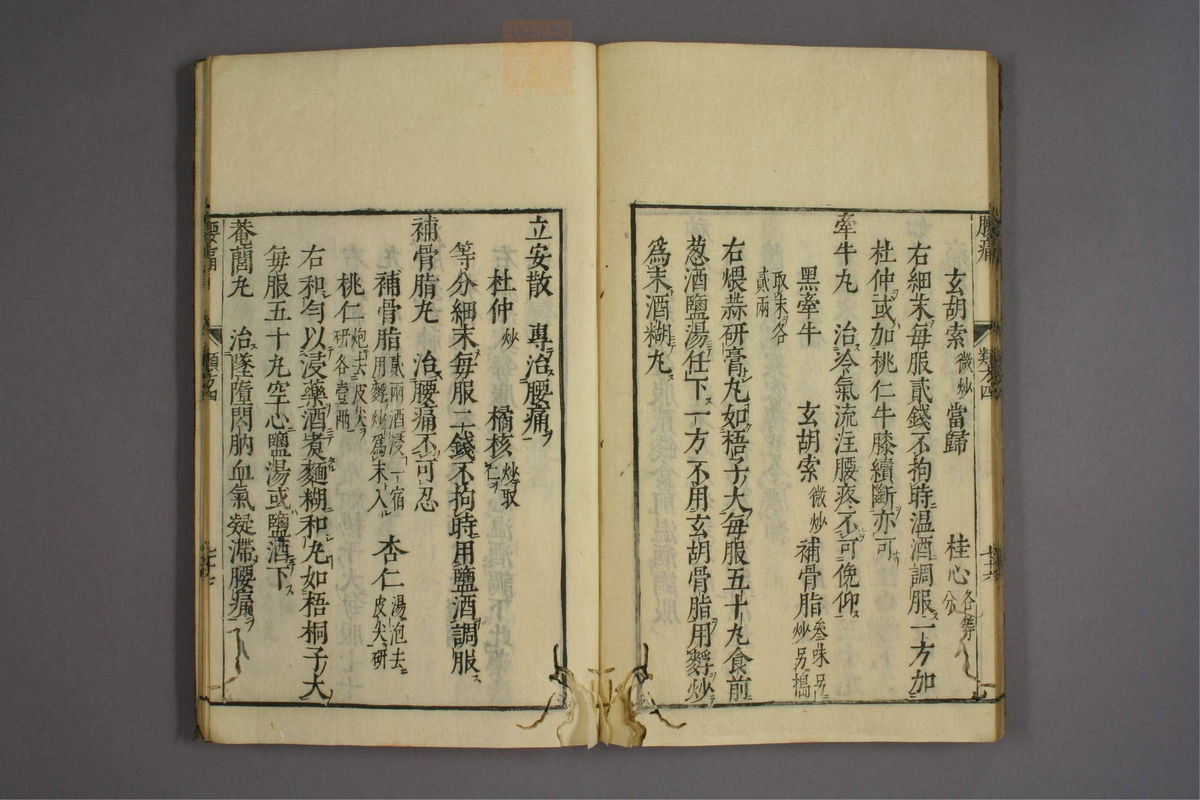 腰痛 類方四 七十六
玄胡索微炒 當歸 桂心各等分
右細末每服貳錢不拘時温酒調服一方加
杜仲或加桃仁牛膝續斷亦可
牽牛丸 治冷氣流注腰疼不可俛仰
黑牽牛 玄胡索微炒 補骨脂炒另搗叁味另
取末各貳兩
右煨蒜研膏丸如梧子大每服五十丸食前
葱酒鹽湯任下一方不用玄胡骨脂用麩炒
爲末酒糊丸
立安散 專治腰痛
杜仲炒 橘核炒取仁
等分細末每服二錢不拘時用鹽酒調服
補骨脂丸 治腰痛不可忍
補骨脂貳兩酒浸一宿用麩炒爲末入 杏仁湯泡去皮尖研
桃仁炮去皮尖研各壹兩
右和勻以浸藥酒煮麵糊和丸如梧桐子大
每服五十丸空心鹽湯或鹽酒下
菴䕡丸 治墜墮閃肭血氣凝滯腰痛
腰痛 類方四 七十七